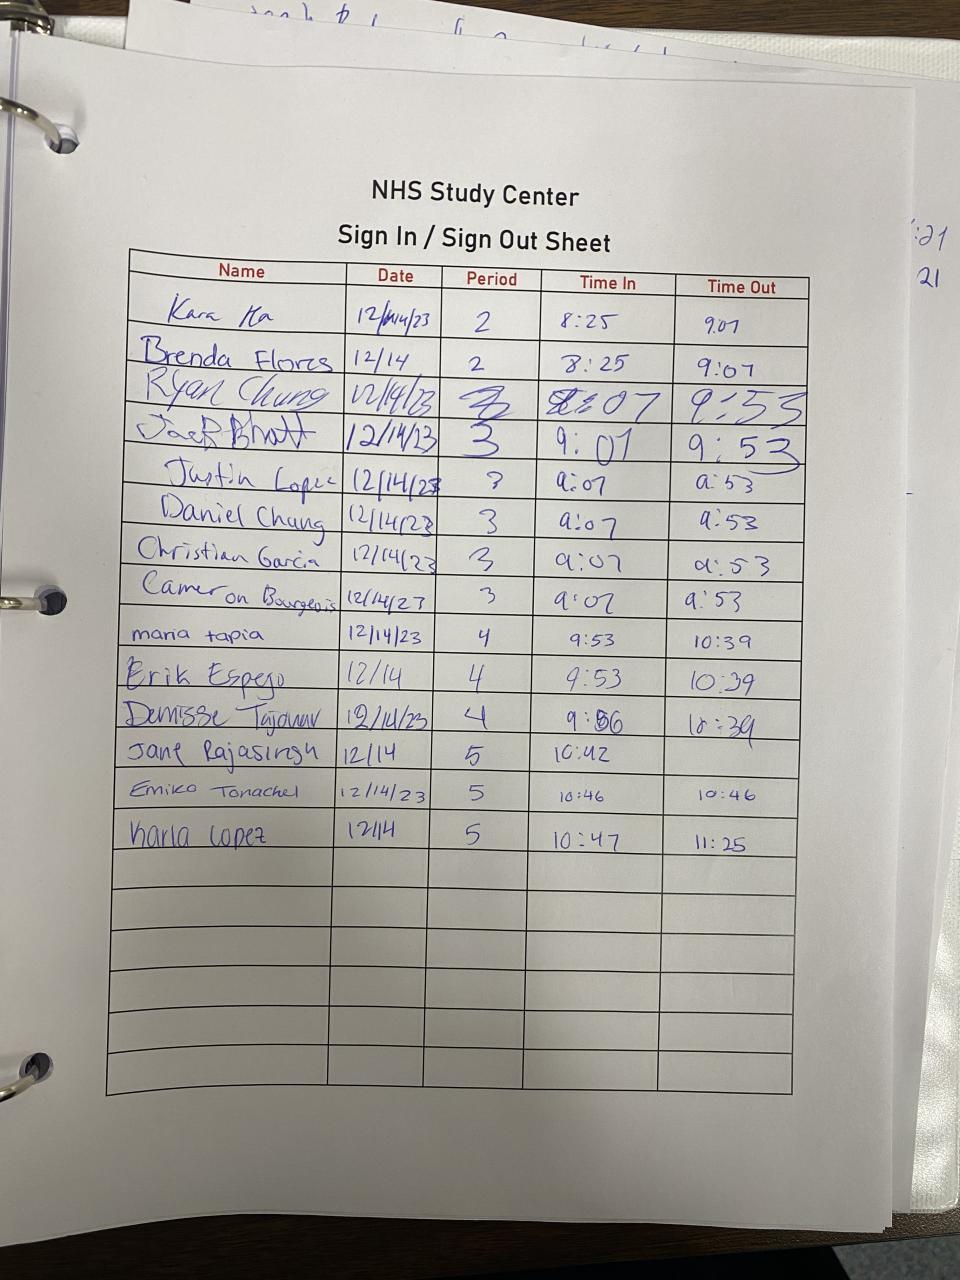 :21
21
NHS Study Center
Sign In / Sign Out Sheet
Name Date Period Time In Time Out
Kara Ha 12/14/23 2 8:25 9:07
Brenda Flores 12/14 2 8:25 9:07
Ryan Chung 12/14/23 3 9:07 9:53
Jack Bhatt 12/14/23 3 9:07 9:53
Justin Lopez 12/14/23 3 9:07 9:53
Daniel Chung 12/14/23 3 9:07 9:53
Christian Garcia 12/14/23 3 9:07 9:53
Cameron Bourgeois 12/14/23 3 9:07 9:53
maria tapia 12/14/23 4 9:53 10:39
Erik Espejo 12/14 4 9:53 10:39
12/14/23 4 9:56 10:39
Jane Rajasingh 12/14 5 10:42
Emiko Tonachel 12/14/23 5 10:46 10:46
Karla Lopez 12/14 5 10:47 11:25